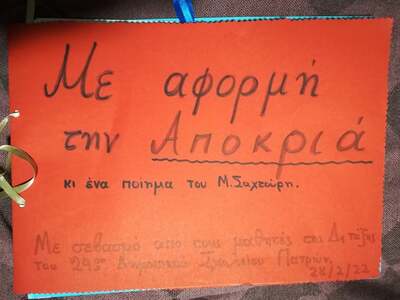 Με αφορμή
την Αποκριά
κι ένα ποίημα του Μ.Σαχτούρη.
Με σεβασμό από τους μαθητές της Δ τάξης
του 24ου Δημοτικού Σχολείου Πατρών,
28/2/22